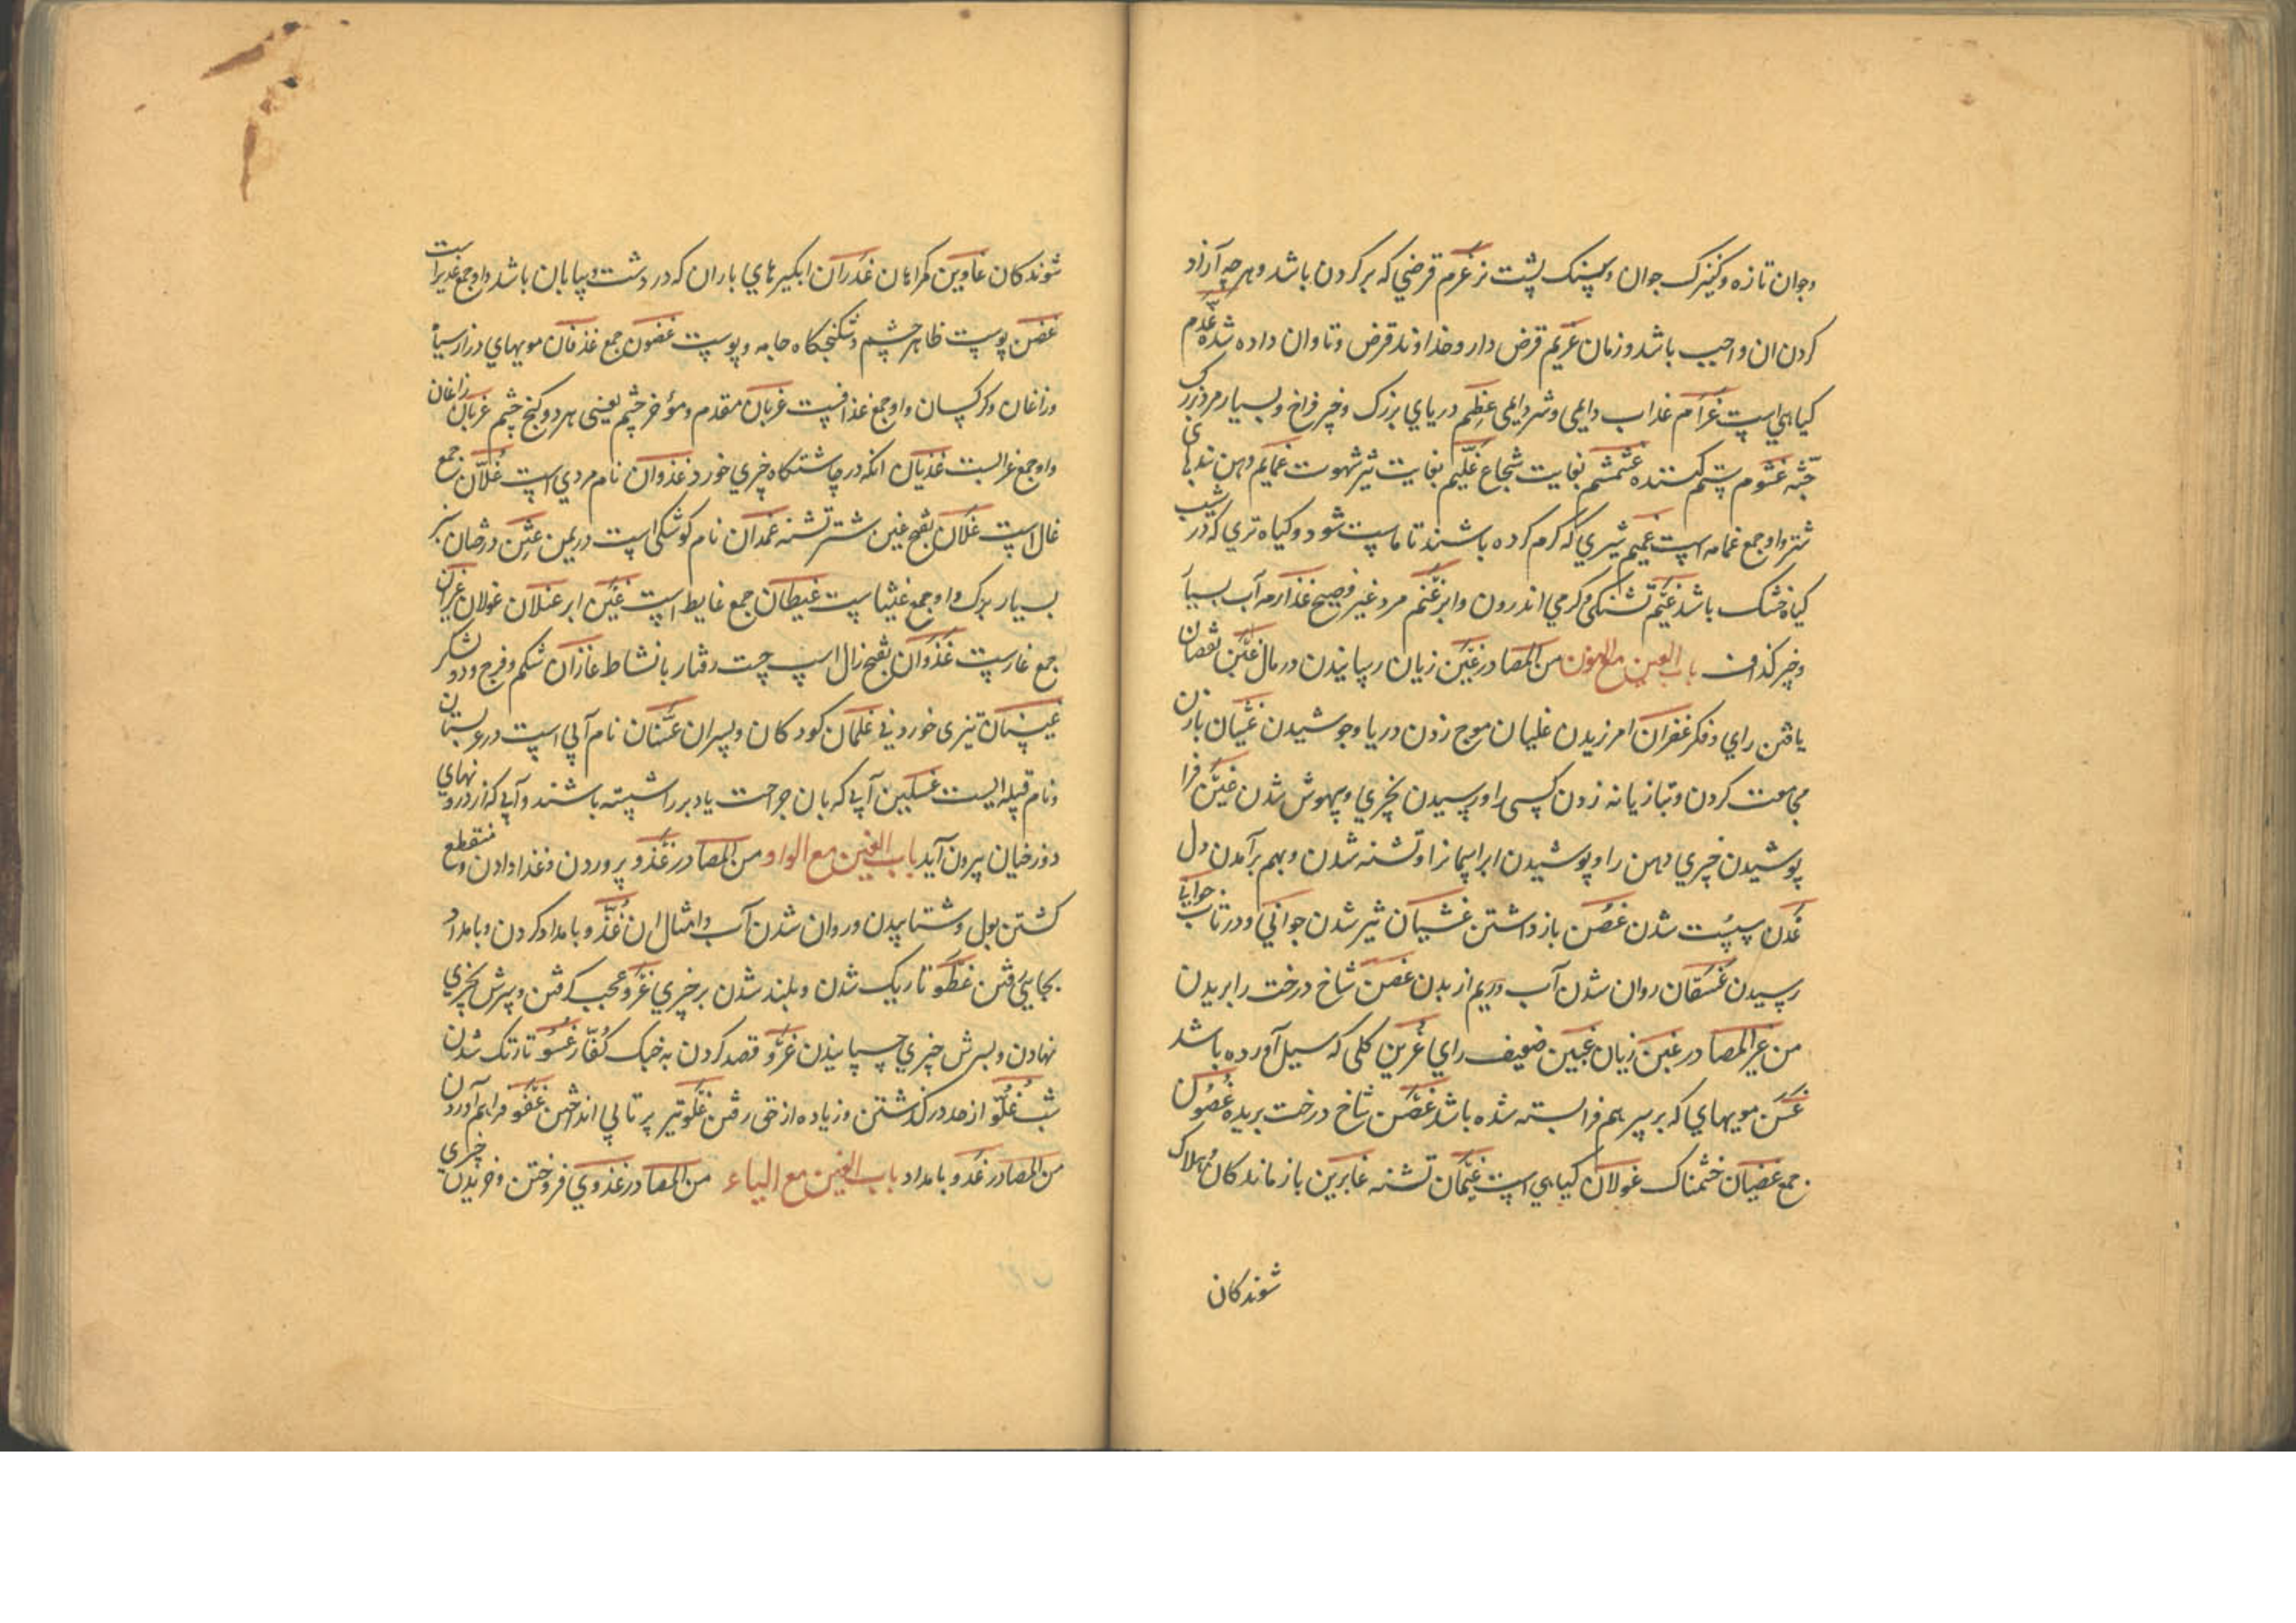 وجوان تازه وکنیزک جوان وسنک پشت نر غرم قرضي که بر کردن باشد وهرچه آزاد
کردن ان واجب باشد وزمان غریم قرض دار وخداوند قرض وتاوان داده شده غذم
کیاهي است غرام عذاب دایمی وشر دایمی غطم دریاي بزرک وخیر فراخ وبسیار مرد بزرک
جثه غشوم ستم کننده غشمشم بغایت شجاع غلیم بغایت تیز شهوت غمایم دهن بندهای
شتر واو جمع غمامه است غمیم شیري که کرم کرده باشند تا ماست شود وکیاه تري که در شیب
کیاه خشک باشد غیم تشنکی وکرمي اندرون وابر غتم مرد غیر فصیح غذارمه آب بسیار
وخیر کذاف باب الغین مع النون من المصادر غبن زیان رسانیدن در مال غبن نقصان
یافتن راي وفکر غفران امرزیدن غلیان موج زدن دریا وجوشیدن غشیان با زن
مجامعت کردن وتازیانه زدن کسی را ورسیدن بچیزي وبیهوش شدن غین فرا
پوشیدن چیزي دهن را وپوشیدن ابر اسمانرا وتشنه شدن وبهم برآمدن دل
غدن سست شدن غصن باز داشتن غشیان تیز شدن جواني ودر تاب جوانی
رسیدن غسقان روان شدن آب وریم از بدن غصن شاخ درخت را بریدن
من غیر المصادر غبن زیان غبین ضعیف راي غرین کلی که سیل آورده باشد
غسن مویهاي که بر سر بهم فرا بسته شده باشد غصن شاخ درخت بریده غصون
جمع غضبان خشمناک غولان کیاهي است غیمان تشنه غابرین باز ماندکان وهلاک
شوندکان
شوندکان غاوین کمراهان غدران ابکیرهاي باران که در دشت وبیابان باشد واو جمع غدیر است
غضن پوست ظاهر چشم وشکنجکاه جامه وپوست غضون جمع غذفان مویهاي دراز سیاه
وزاغان وکرکسان واو جمع غذافست غربان مقدم ومؤخر چشم یعنی هر دو کنج چشم غربان زاغان
واو جمع غرابست غذیان انکه در چاشتکاه چیزي خورد غذوان نام مردي است غلان جمع
غال است غلان بفتح غین شتر تشنه غمدان نام کوشکی است در یمن غین درختان سبز
بسیار برک واو جمع غیناست غیطان جمع غایط است غین ابر غیلان غولان غیران
جمع غارست غذوان بفتح زال اسپ چست رفتار با نشاط غازان شکم وفرج ودو لشکر
غیسان تیزی خورد في غلمان کودکان وپسران غسان نام آبی است در عربستان
ونام قبیله ایست غسلین آبی که بان جراحت یا دبر را شسته باشند وآبی که از درونهاي
دوزخیان بیرون آید باب الغین مع الواو من المصادر غذو پروردن وغذا دادن ومنقطع
کشتن بول وشتابیدن وروان شدن آب وامثال ان غدو بامداد کردن وبامداد
بجایي رفتن غطو تاریک شدن وبلند شدن بر چیزي غرو عجب کرفتن وسرش بچیزي
نهادن وبسرش چیزي چسپانیدن غزو قصد کردن به جنک کفار غسو تاریک شدن
شب غلو از حد در کذشتن وزیاده از حق رفتن غلو تیر پرتابي انداختن غفو فراهم آوردن
من المصادر غدو بامداد باب الغین مع الیاء من المصادر غذوي فروختن وخریدن چیزی